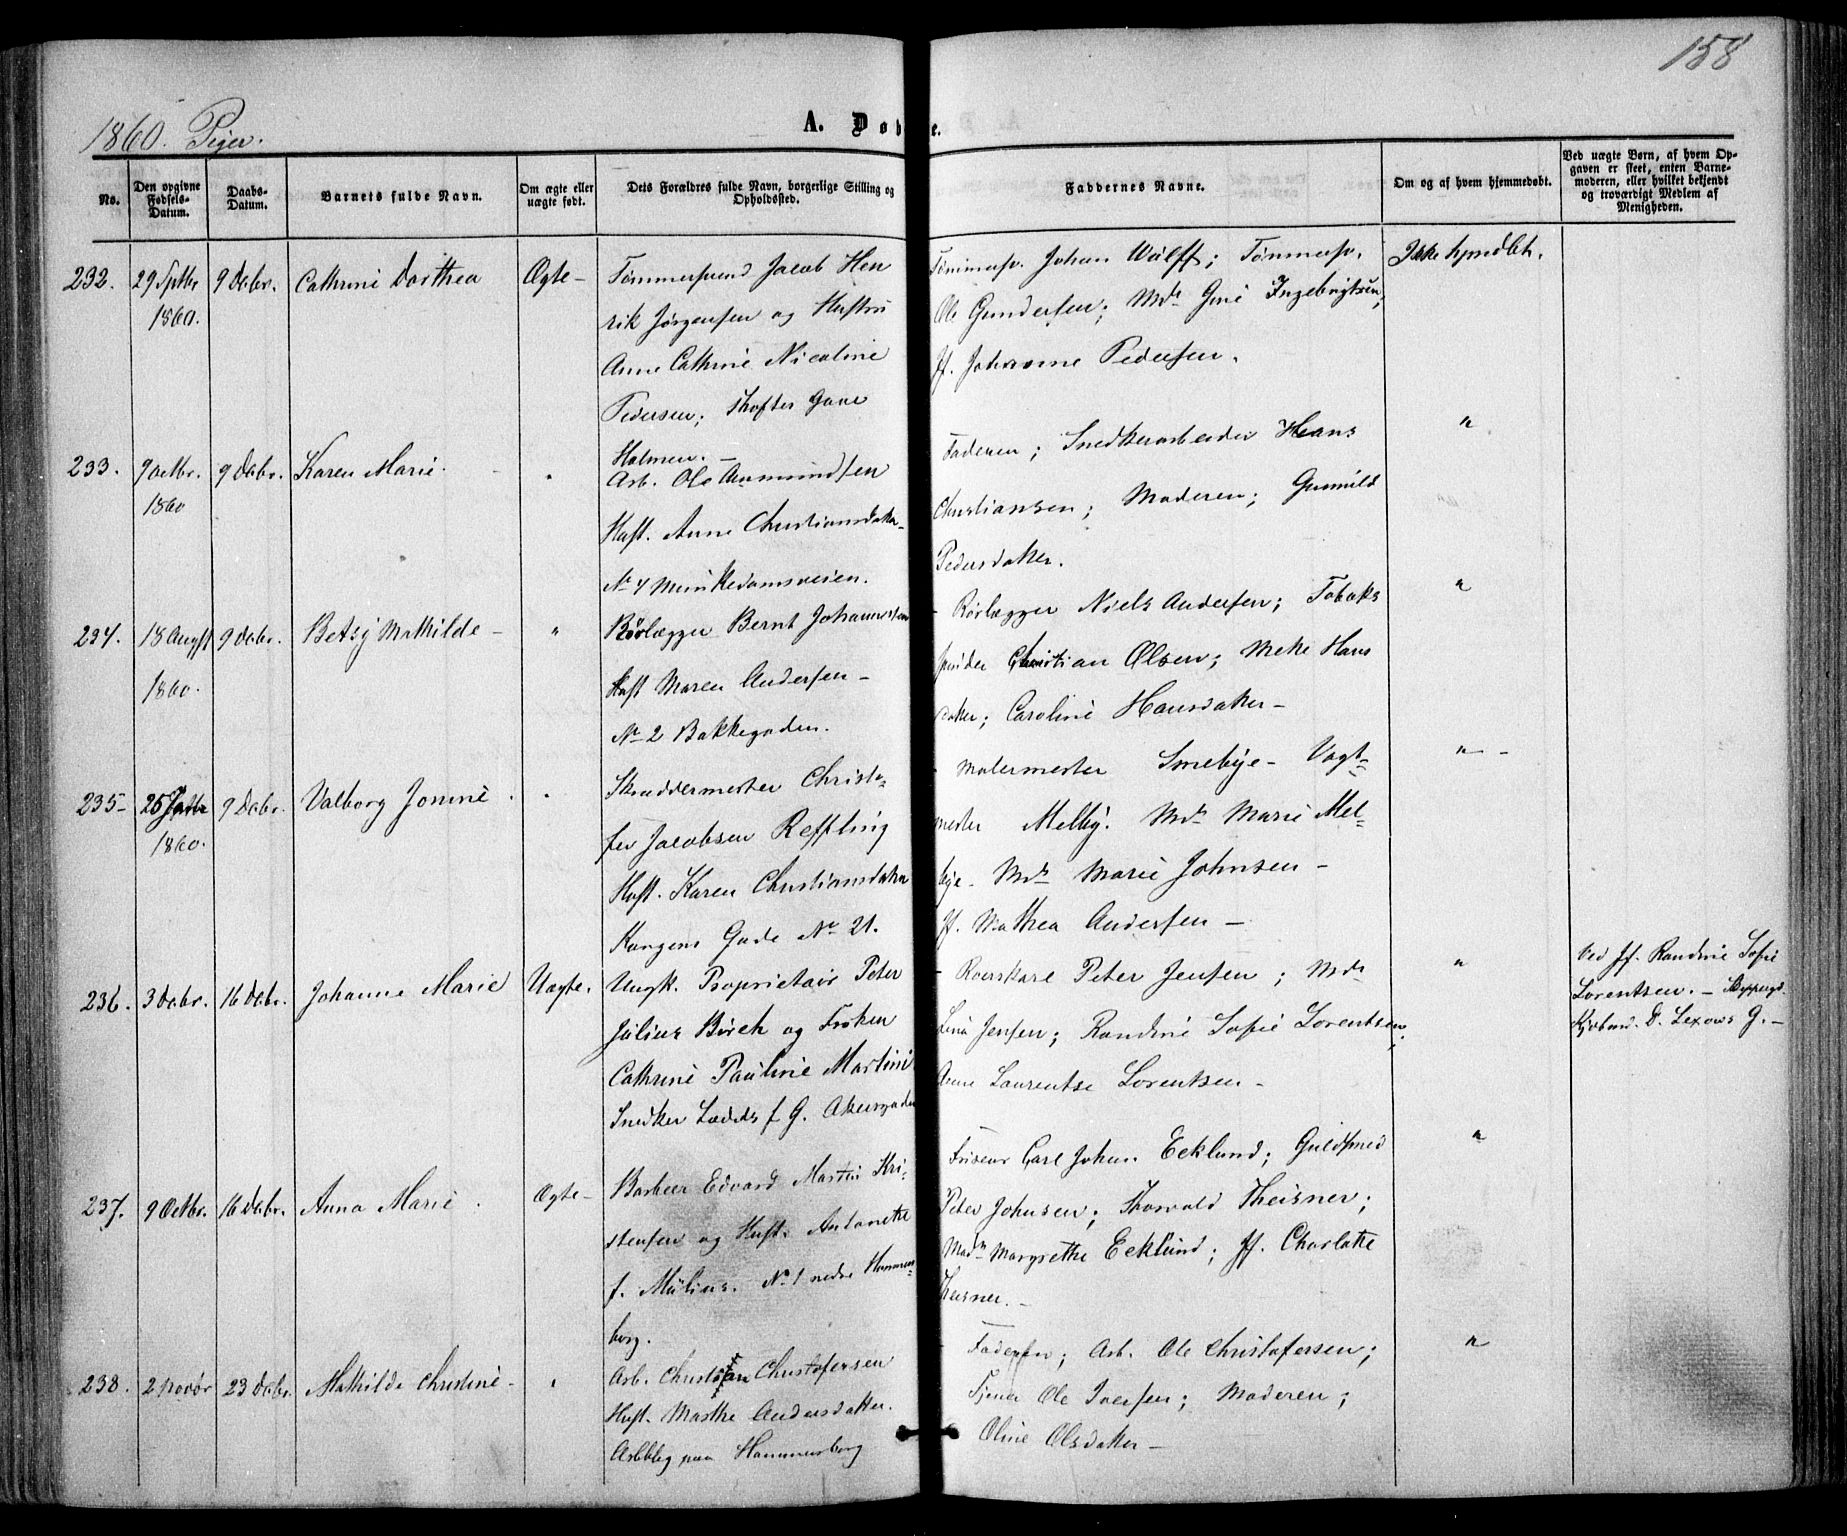 158
1860. Piger.
A. Døbte.
No.
Den opgivne Fødsels-Datum.
Daabs-Datum.
Barnets fulde Navn.
Om ægte eller uægte født.
Dets Forældres fulde Navn, borgerlige Stilling og Opholdssted.
Faddernes Navne.
Om og af hvem hjemmedøbt.
Ved uægte Børn, af hvem Opgaven er skeet, enten Barnemoderen, eller hvilket bekjendt og troværdigt Medlem af Menigheden.
232. 29 Septbr 1860. 9 Debr. Cathrine Dorthea Ægte-
Tømmermand Jacob Hen
rik Jørgensen og Hustru
Anne Cathrine Nicoline
Pedersen;
Holmen. -
Tømmerm. Johan Wulff; Tømmerm.
Ole Gundersen; Md. Gine Ingebrigtsen;
Jf. Johanne Pedersen.
Ikke hjmdbt.
233. 9 Octbr. 1860 9 Debr. Karen Marie. "
Arb. Ole Aamundsen
Hust. Anne Christiansdatter
No 4 Munkedamsveien.
Faderen; Snedkerarbeider Hans
Christiansen; Moderen; Gunnild
Pedersdatter.
"
234. 18 August 1860. 9 Debr. Betsy Mathilde - "
Rørlægger Bernt Johannessen
Hust Maren Andersen -
No 2 Bakkegaden.
- Rørlægger Niels Andersen; Tobaks
spinder Christian Olsen; Mette Hans
datter; Caroline Hansdatter -
"
235- 9 Debr. Valborg Jonine. "
1860.
Skræddermester Christo-
fer Jacobsen Reffling
Hust. Karen Christiansdatter
Kongens Gade No 21.
- Malermester Smebye - Vagt-
mester Melby. Md. Marie Mel-
bye - Md. Marie Johnsen -
Jf. Mathea Andersen -
" -
236. 3 Debr. 16 Debr. Johanne Marie Uægte.
Ungk. Proprietair Peter
Julius Borch og Frøken
Cathrine Pauline Martini
Snedker G. Akersgaden
- Peter Jensen; Md.
Lina Jensen; Randine Sofie Lorentsen;
Anne Laurentse Lorentsen -
"
Ved Jf. Randine Sofie
Lorentsen. -
D. Lexows G. -
237. 9 Octbr. 16 Debr. Anna Marie. Ægte-
Barbeer Edvard Martin Kri-
stensen og Hust. Antonette
f. Mülius. No 1 nedre Hammers-
borg.
Friseur Carl Johan Ecklund; Guldsmed
Peter Johnsen; Thorvald Theisner;
Madm Margrethe Ecklund; Jf. Charlotte
Theisner. -
"
238. 2 Novbr 23 Debr. Mathilde Christine - "
Arb. Christian Christofersen
Hust. Marthe Andersdatter.
Arbblig paa Hammersborg
- Faderen; Arb. Ole Christofersen;
Tjener Ole Iversen; Moderen;
Oline Olsdatter -
"